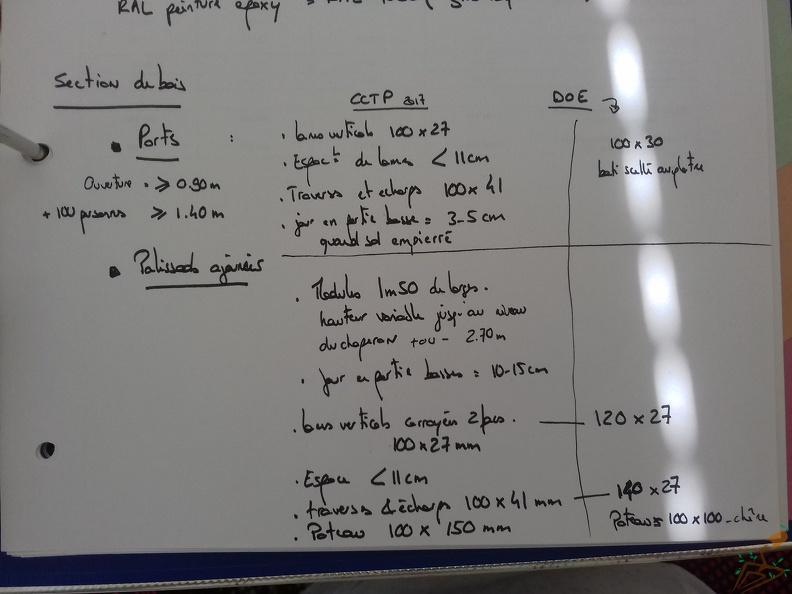 RAL peinture epoxy = RAL
Section du bois
CCTP 2017
DOE
• Ports :
Ouverture . ≥ 0.90 m
+ 100 personnes ≥ 1.40 m
. lames verticales 100 x 27
. Espact de lames < 11 cm
. Travers et echarps 100 x 41
. jour en partie basse = 3-5 cm
quand sol empierré
100 x 30
bati scellé au platre
• Palissads ajourées
. Modules 1m50 de large.
hauteur variable jusqu'au niveau
du chaperon + ou - 2.70 m
. jour en partie basses = 10-15 cm
. lams verticals 2 pcs.
100 x 27 mm
120 x 27
. Espace < 11 cm
. travers & écharps 100 x 41 mm
140 x 27
. Poteau 100 x 150 mm
Poteaux 100 x 100 - chêne